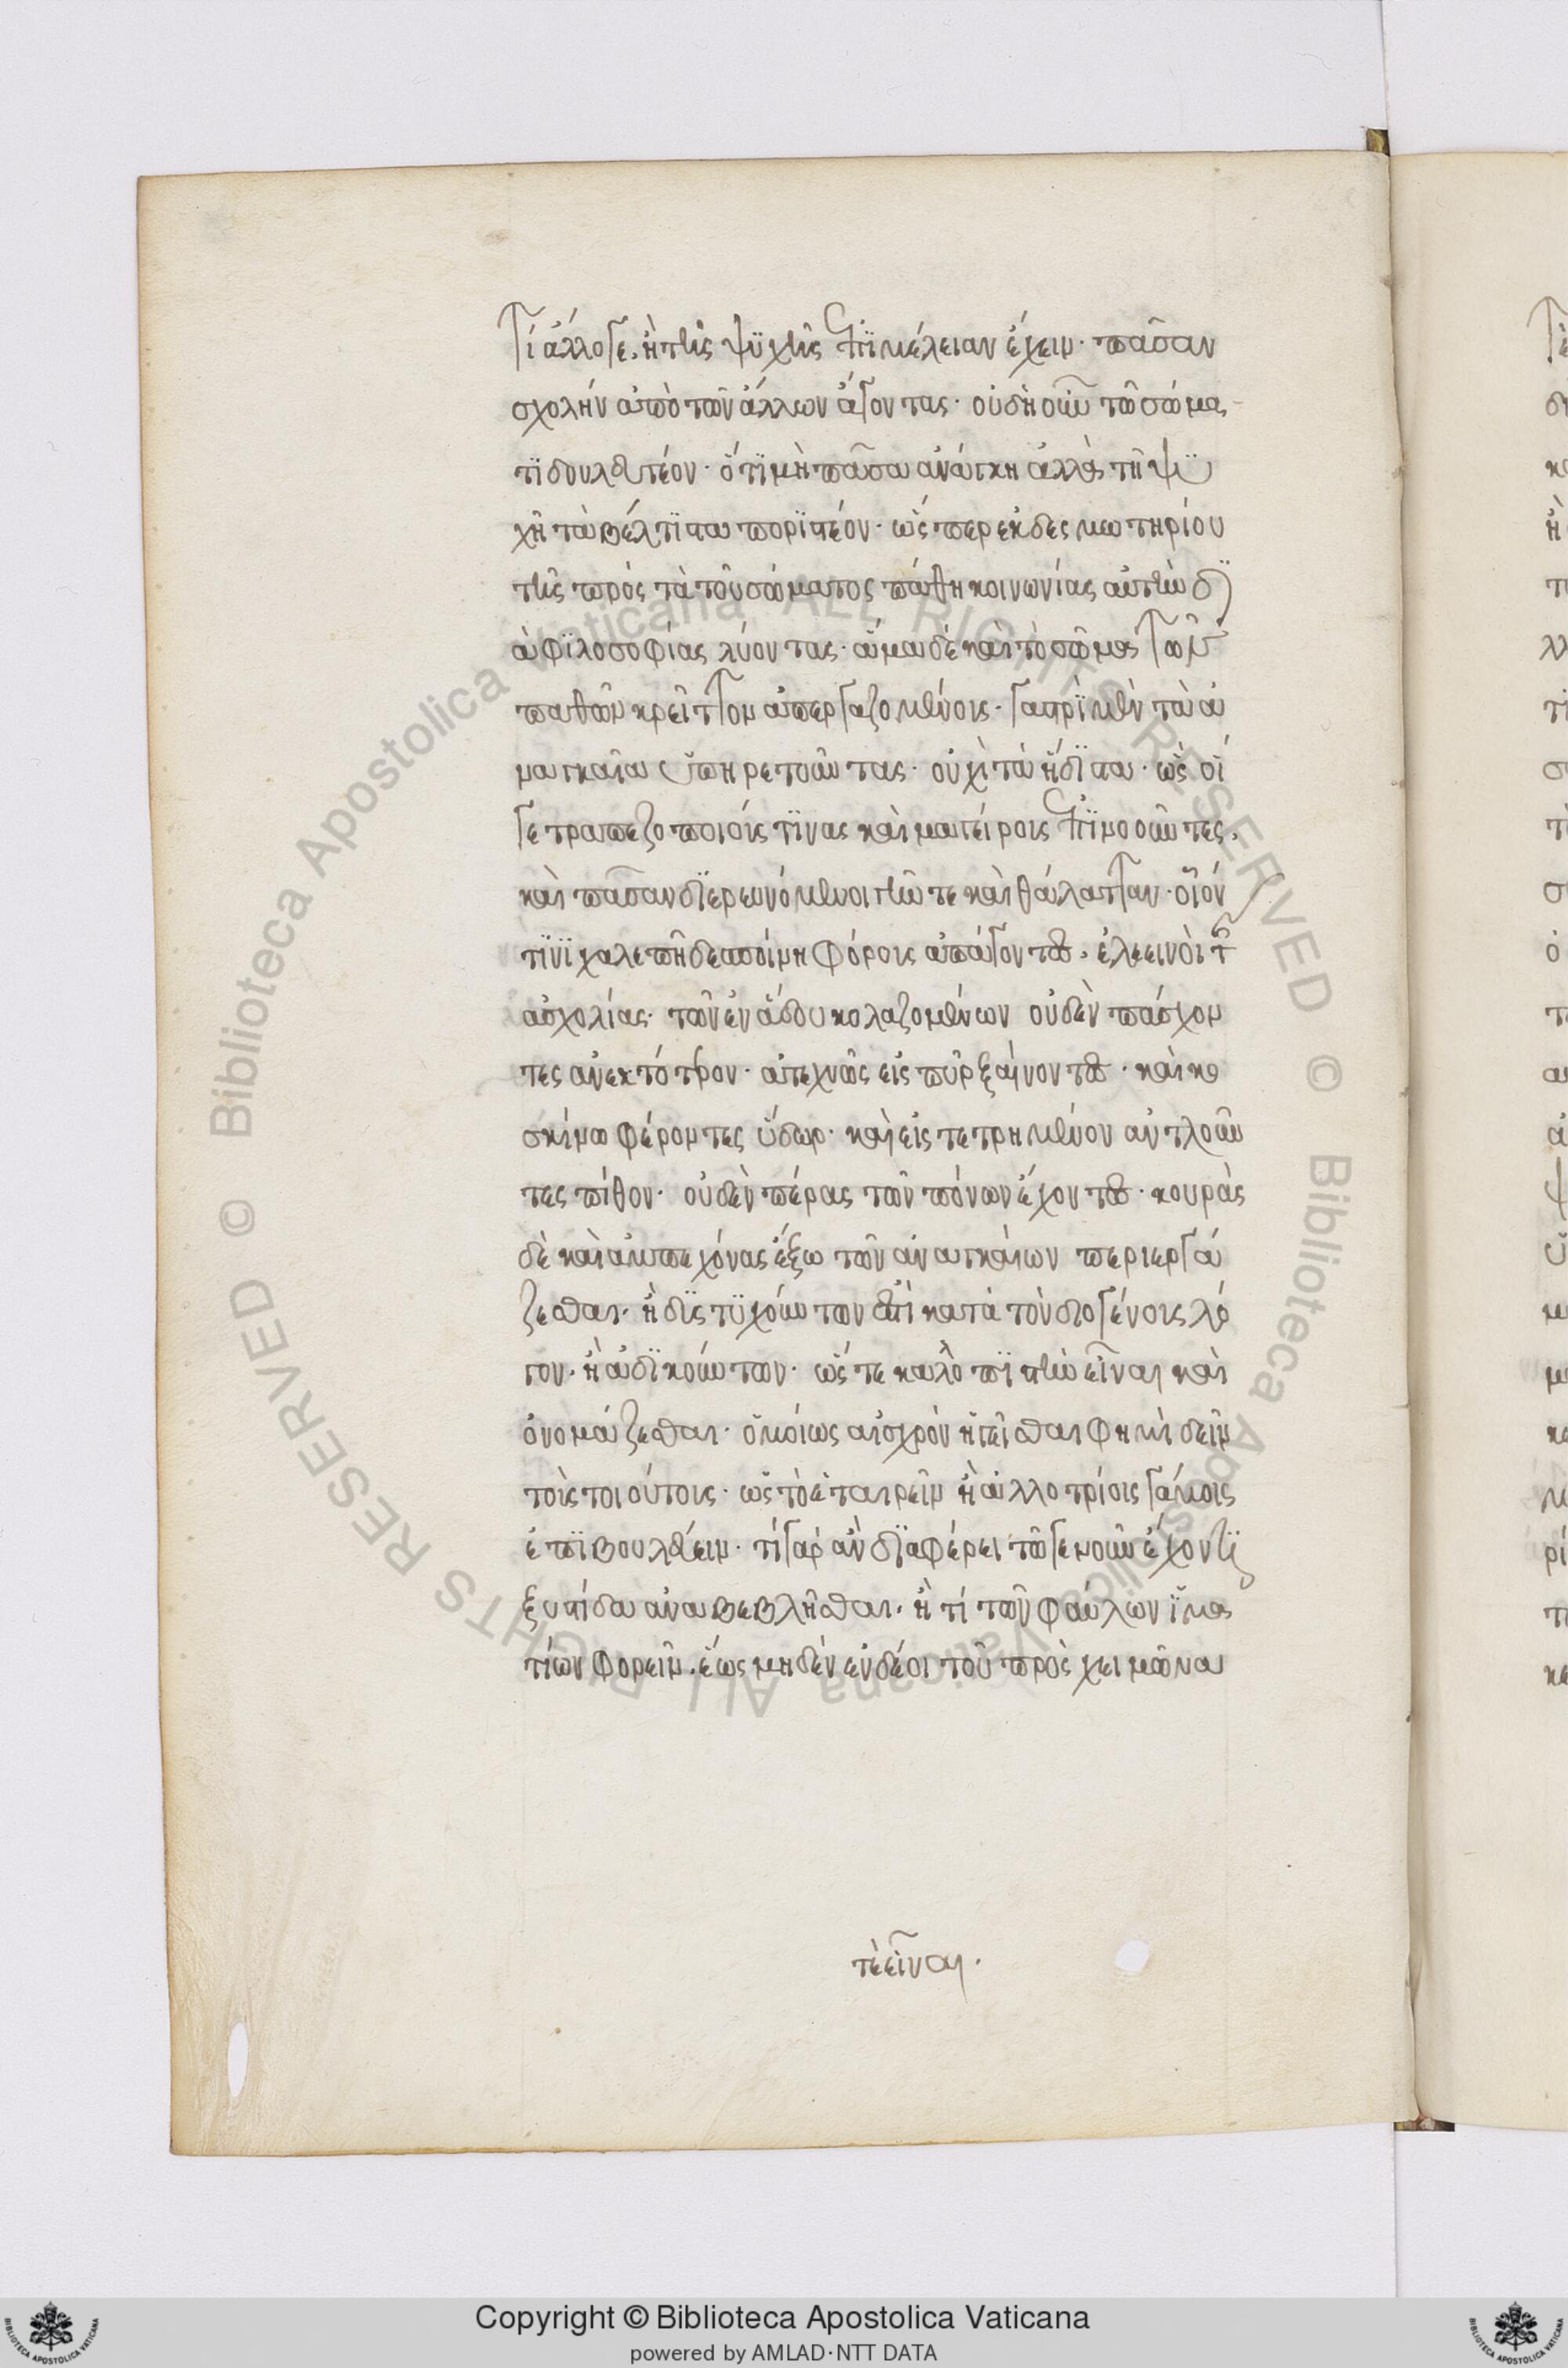 Τί ἄλλο γε. ἢ τῆς ψυχῆς ἐπιμέλειαν ἔχειν· πᾶσαν
σχολὴν ἀπὸ τῶν ἄλλων ἄγοντας· οὐ δὴ οὖν τῶ σώμα-
τι δουλευτέον· ὅτι μὴ πᾶσα ἀνάγκη ἀλλὰ τῇ ψυ
χῇ τὰ βέλτιστα ποριστέον· ὥσπερ ἐκ δεσμωτηρίου
τῆς πρὸς τὰ τοῦ σώματος πάθη κοινωνίας αὐτὴν δι
ὰ φιλοσοφίας λύοντας· ἅμα δὲ καὶ τὸ σῶμα τῶν
παθῶν κρεῖττον ἀπεργαζομένους· γαστρὶ μὲν τὰ ἀ
ναγκαῖα ὑπηρετοῦντας· οὐχὶ τὰ ἥδιστα· ὡς οἵ
γε τραπεζοποιούς τινας καὶ μαγείρους ἐπινοοῦντες,
καὶ πᾶσαν διερευνόμενοι γῆν τε καὶ θάλατταν· οἷόν
τινι χαλεπῇ δεσποίνῃ φόρους ἀπάγοντες, ἐλεεινοὶ τῆς
ἀσχολίας· τῶν ἐν ἅδου κολαζομένων οὐδὲν πάσχον
τες ἀνεκτότερον· ἀτεχνῶς εἰς πῦρ ξαίνοντες· καὶ κο
σκίνω φέροντες ὕδωρ· καὶ εἰς τετρημένον ἀντλοῦν
τες πίθον· οὐδὲν πέρας τῶν πόνων ἔχοντες· κουρὰς
δὲ καὶ ἀμπεχόνας ἔξω τῶν ἀναγκαίων περιεργά
ζεσθαι· ἢ δυστυχούντων ἐστὶ κατὰ τὸν διογένους λό
γον· ἢ ἀδικούντων· ὥστε καλλοπιστὴν εἶναι καὶ
ὀνομάζεσθαι· ὁμοίως αἰσχρὸν ἡγεῖσθαι φημὶ δεῖν
τοὺς τοιούτους· ὡς τὸ ἑταιρεῖν ἢ ἀλλοτρίοις γάμοις
ἐπιβουλεύειν· τί γὰρ ἂν διαφέρει τῶ γε νοῦν ἔχοντι
ξυστίδα ἀναβεβλῆσθαι. ἤ τι τῶν φαύλων ἱμα
τίων φορεῖν. ἕως μηδὲν ἐνδέοι τοῦ πρὸς χειμῶνα
τὲ εἶναι.
Copyright © Biblioteca Apostolica Vaticana
powered by AMLAD·NTT DATA